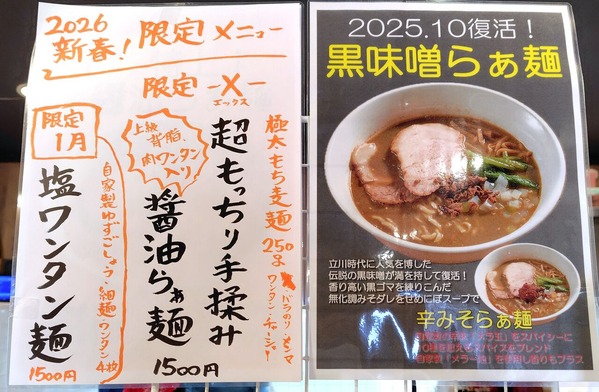 2026
新春！限定メニュー
限定 -X-
エックス
極太もち麦麺
250g
バラのり
ワンタン
チャーシュー
超もっちり手揉み
醤油らぁ麺
1500円
上級
背脂、
肉ワンタン
入り
限定
1月
自家製ゆずごしょう、細麺
ワンタン
4枚
塩ワンタン麺
1500円
2025.10復活！
黒味噌らぁ麺
立川時代に人気を博した
伝説の黒味噌が満を持して復活！
香り高い黒ゴマを練りこんだ
無化調みそダレをせめにぼスープで
辛みそらぁ麺